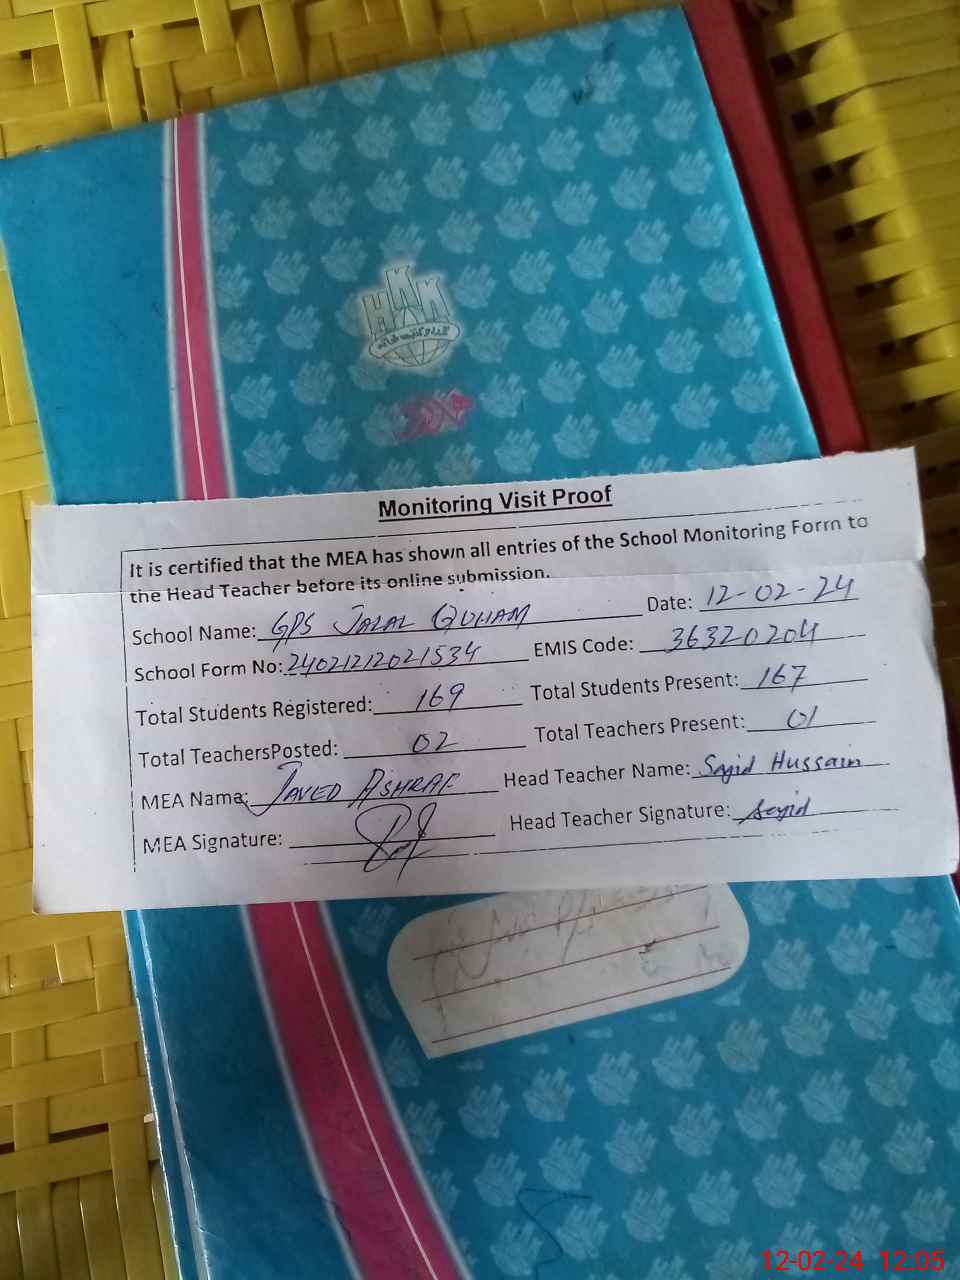 HKK
Monitoring Visit Proof
It is certified that the MEA has shown all entries of the School Monitoring Form to
the Head Teacher before its online submission.
School Name: GPS JALAL QUHAM Date: 12-02-24
School Form No: 24021212021534 EMIS Code: 36320204
Total Students Registered: 169 Total Students Present: 167
Total TeachersPosted: 02 Total Teachers Present: 01
MEA Name: JAVED ASHRAF Head Teacher Name: Sajid Hussain
MEA Signature: Head Teacher Signature: Sajid
12-02-24 12:05